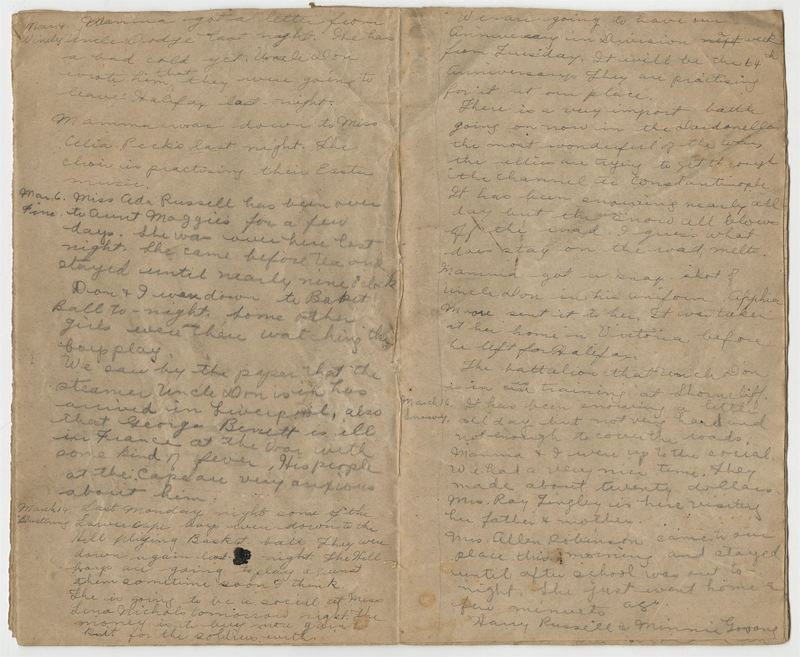 Mar. 4. Mamma got a letter from
Windy Uncle Dodge last night. He has
a bad cold yet. Uncle Don
wrote him that they were going to
leave Halifax last night.
Mamma was down to Miss
Celia Peck's last night. The
choir is practising their Easter
music.
Mar. 6. Miss Ada Russell has been over
Fine. to Aunt Maggies for a few
days. She was over here last
night. She came before tea and
stayed until nearly nine o'clock
Dion & I was down to Basket
Ball to-night. Some other
girls were there watching the
boys play.
We saw by the paper that the
steamer Uncle Don is in has
arrived in Liverpool, also
that George Benett is ill
in France at the war with
some kind of fever, His people
at the Cape are very anxious
about him.
March 14. Last Monday night some of the
Blustering Lower Cape boys were down to the
Hill playing Basket ball. They were
down again last night. The Hill
boys are going to play against
them sometime soon I think
The is going to be a social at Miss
Lena Nichols tomorrow night. The
money is to buy more yarn to
knit for the soldiers with.
We are going to have our
Anniversary in Division night week
from Tuesday. It will be the 64 th
Anniversary. They are practising
for it at our place.
There is a very import battle
going on now in the Dardanelles
the most wonderful of the wars
the allies are trying to get through
the channel to Constantinople
It has been snowing nearly all
day but the snow all blows
off the road I guess what
does stay on the road melts.
Mamma got a snap shot of
Uncle don in his uniform. Apphia
Moore sent it to her. It was taken
at her home in Victoria before
he left for Halifax.
The battalion that uncle Don
is in is in training at Shorncliff.
March 16. It has been snowing a little
Snowy. all day but not very hard and
not enough to cover the roads.
Mamma & I were up to the social.
We had a very nice time. They
made about twenty dollars.
Mrs. Ray Tingley is here visiting
her father & mother.
Mrs. Allen Robinson came to our
place this morning and stayed
until after school was out to
night. She just went home a
few minuets ago.
Harry Russell & Minnie